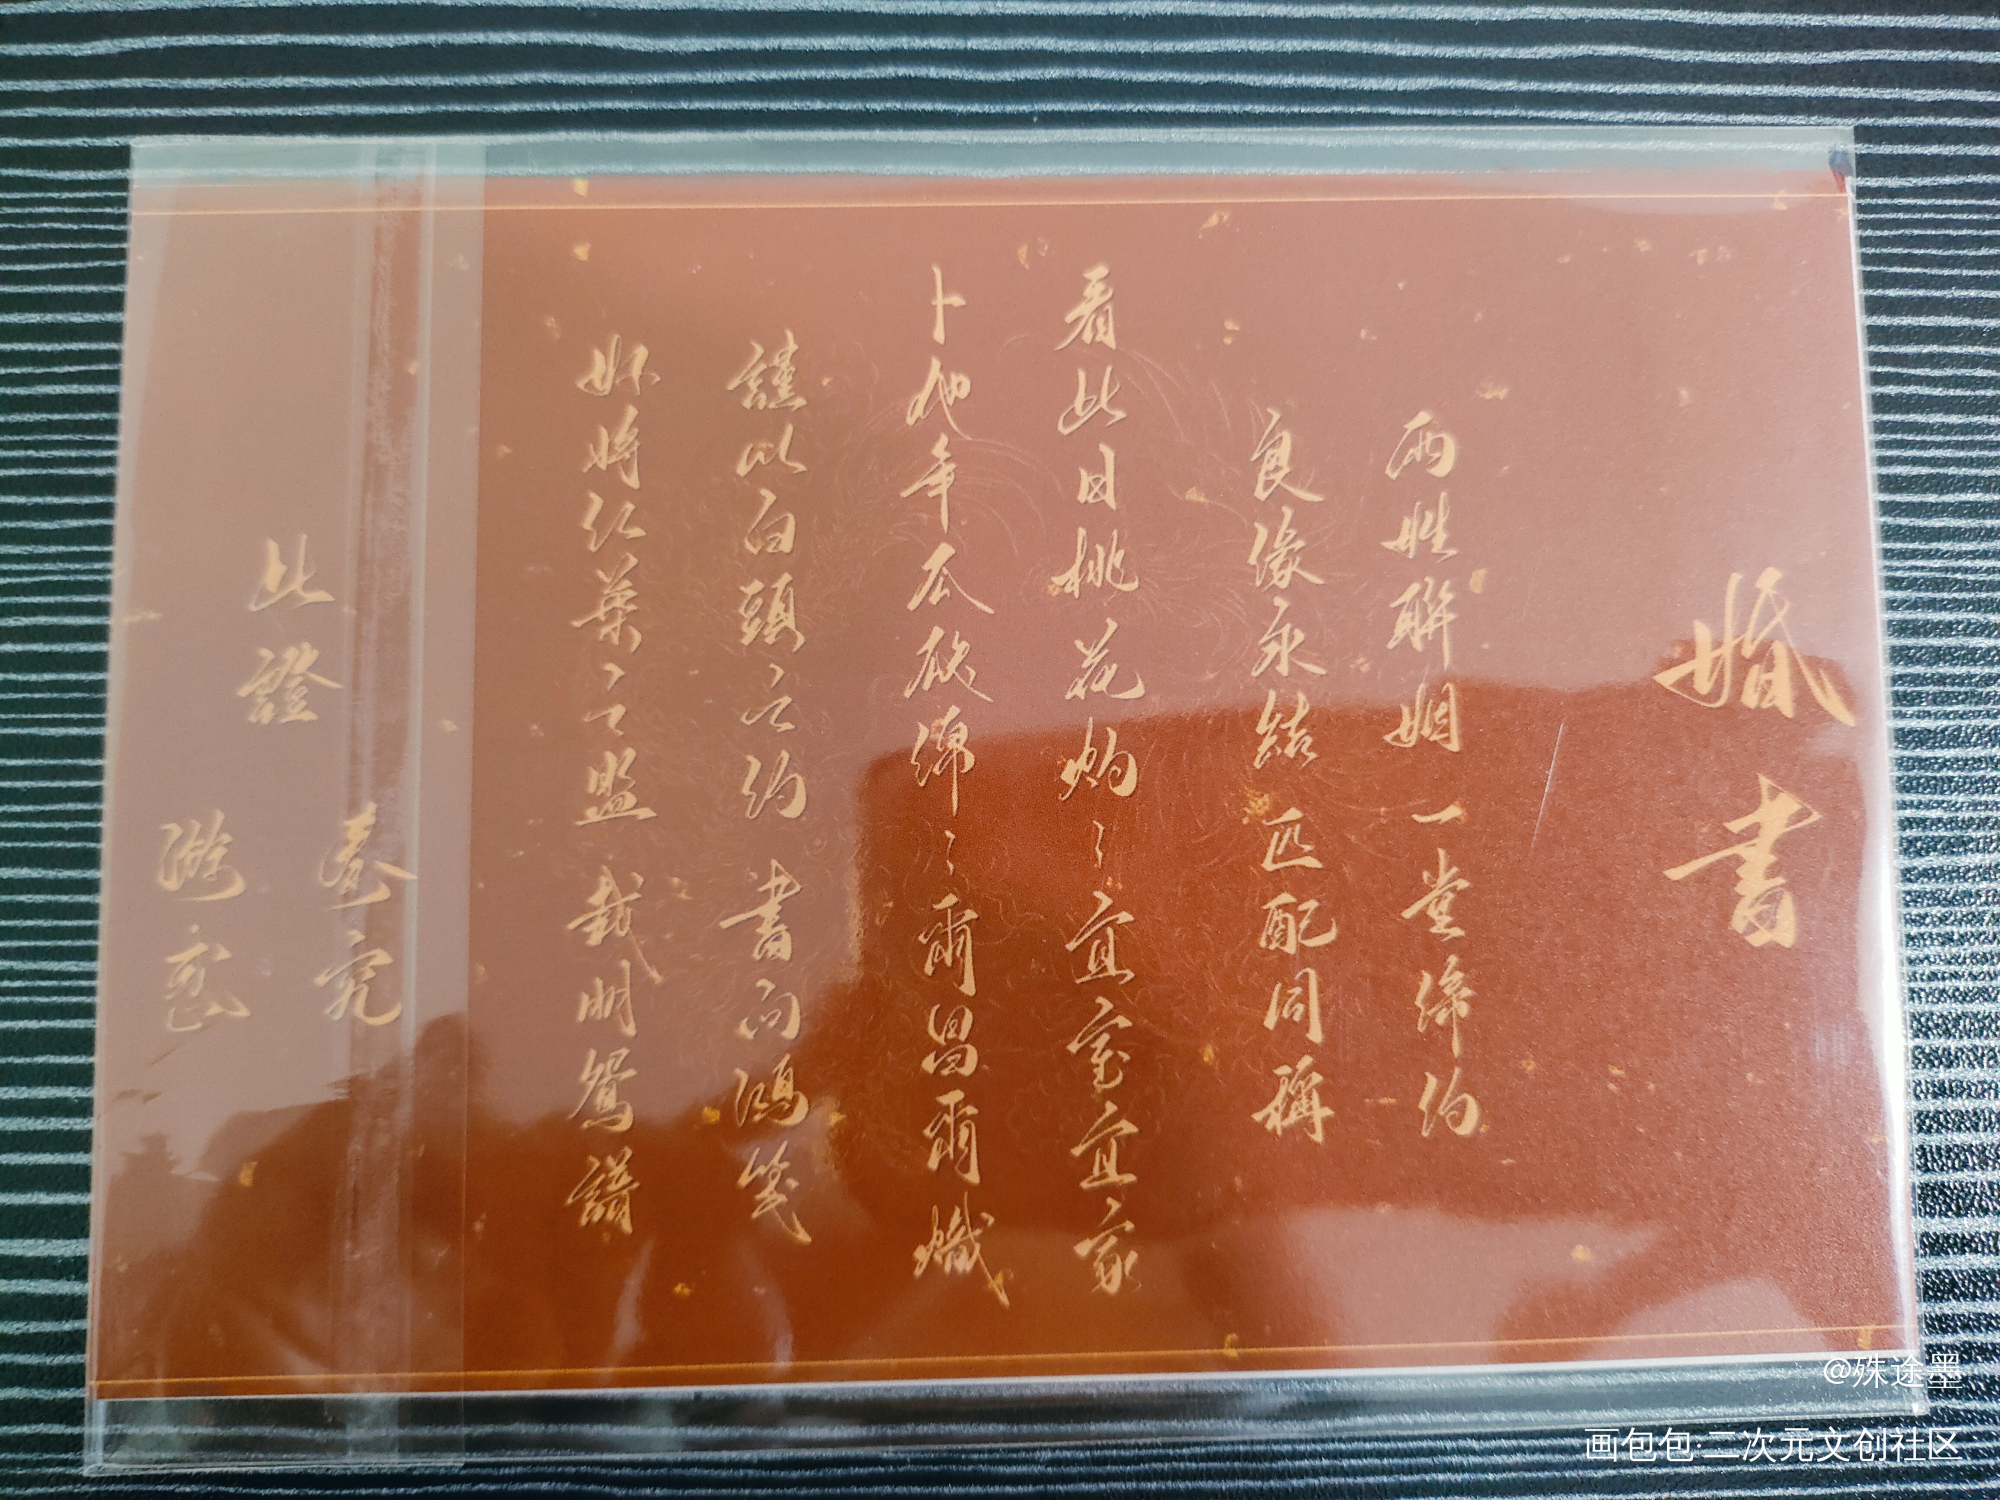 婚書
兩姓聯姻 一堂締約
良緣永結 匹配同稱
看此日桃花灼〻宜室宜家
卜他年瓜瓞綿〻爾昌爾熾
謹以白頭之約 書向鴻箋
好將红葉之盟 載明鴛譜
此證
秦究
游惑
@殊途墨
画包包·二次元文创社区